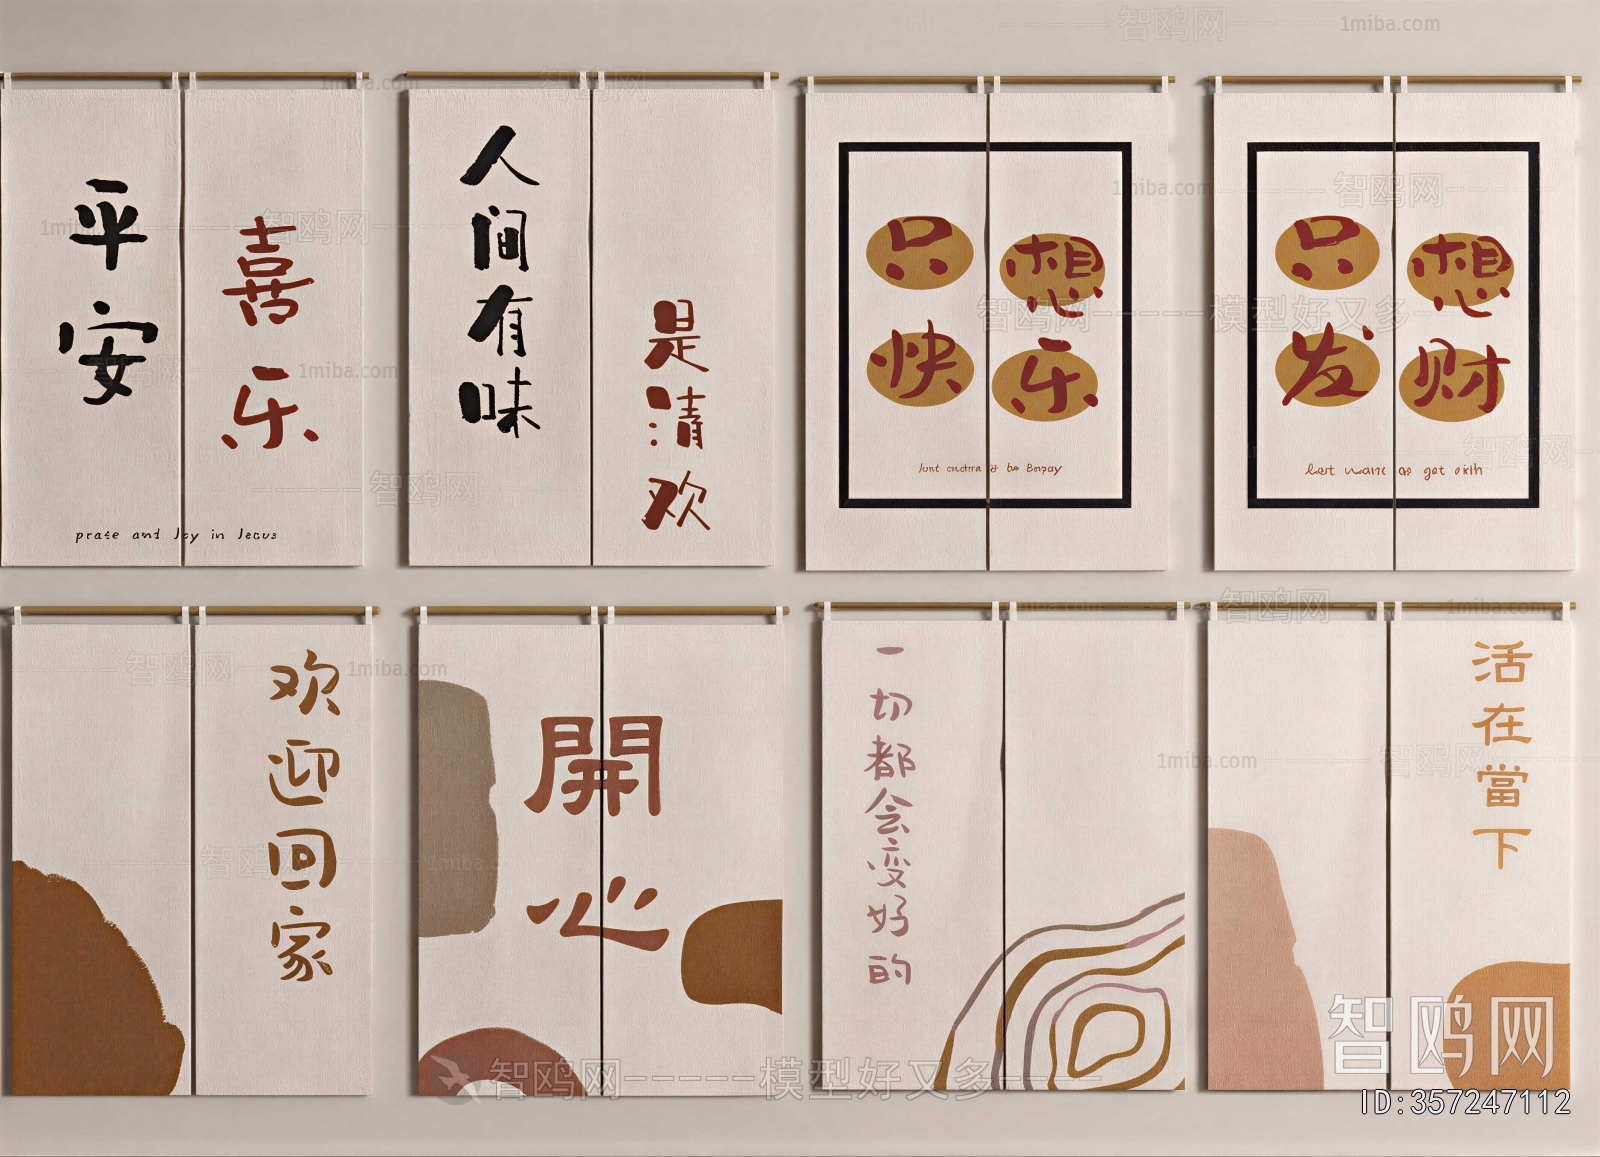 平安
喜乐
prase and Joy in Jesus
人间有味
是清欢
只想
快乐
只想
发财
欢迎回家
開心
一切都会变好的
活在當下
智鸥网
1miba.com
智鸥网-----模型好又多-----
智鸥网
ID:357247112